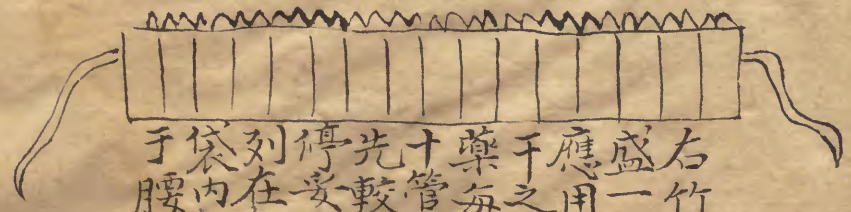 右竹
盛一
應用
干之
藥每
十管
先較
停妥
列在
袋内
于腰